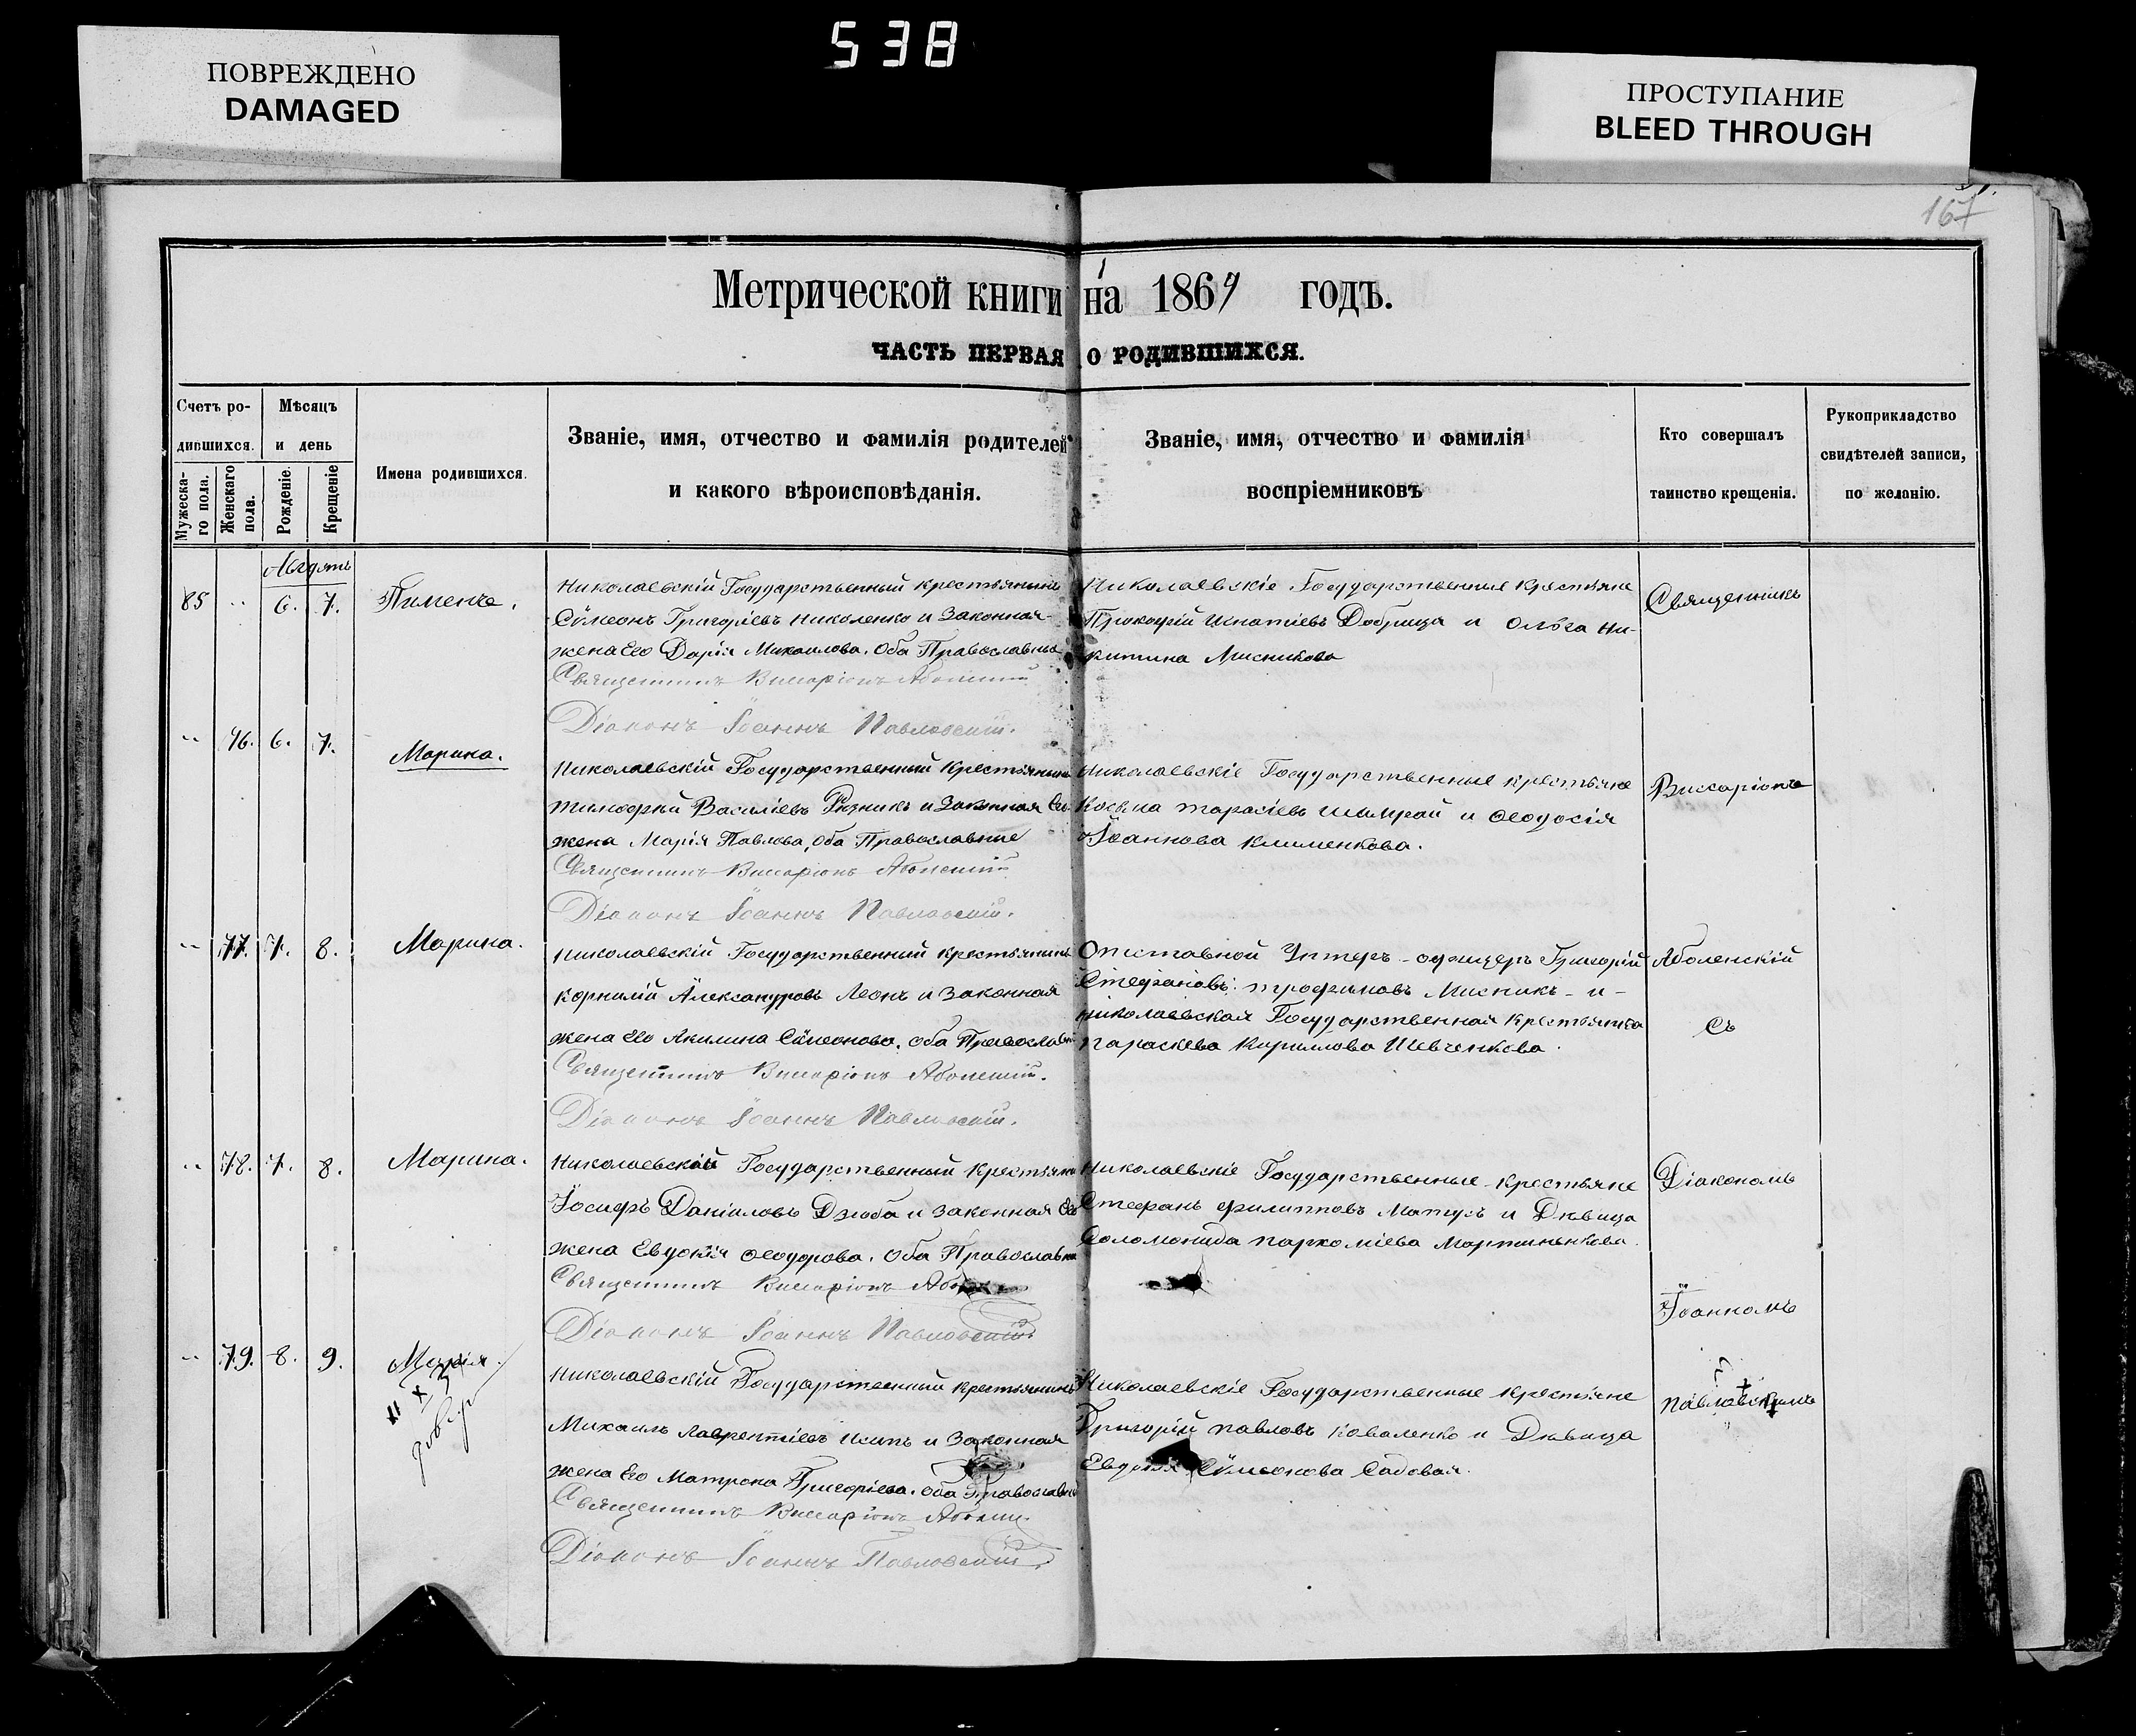 538
ПОВРЕЖДЕНО
DAMAGED
ПРОСТУПАНИЕ
BLEED THROUGH
167
Метрической книги на 1869 годъ.
ЧАСТЬ ПЕРВАЯ О РОДИВШИХСЯ.
Счетъ ро-
дившихся.
Мужеска-
го пола.
Женскаго
пола.
Мѣсяцъ
и день
Рожденіе.
Крещеніе
Имена родившихся.
Званіе, имя, отчество и фамилія родителей
и какого вѣроисповѣданія.
Званіе, имя, отчество и фамилія
воспріемниковъ
Кто совершалъ
таинство крещенія.
Рукоприкладство
свидѣтелей записи,
по желанію.
Августъ
85 .. 6. 7. Пименъ.
Николаевскій Государственный крестьянинъ
Сѵмеонъ Григоріевъ Николенко и законная
жена Его Дарія Михаилова. Оба Православные
Священникъ Виссаріонъ Аболенскій
Діаконъ Іоаннъ Павловскій.
Николаевскіе Государственные крестьяне
Прокофій Игнатіевъ Добрица и Ольга Ни-
китина Мисникова
Священникъ
.. 76. 6. 7. Марина.
Николаевскій Государственный крестьянинъ
Тимофей Василіевъ Рѣзникъ и законная Его
жена Марія Павлова, Оба Православные
Священникъ Виссаріонъ Аболенскій
Діаконъ Іоаннъ Павловскій.
Николаевскіе Государственные крестьяне
Косьма Тарасіевъ Шамрай и Ѳеодосія
Іоаннова Клименкова.
Виссаріонъ
.. 77. 7. 8. Марина.
Николаевскій Государственный крестьянинъ
Корнилій Александровъ Леонъ и законная
жена Его Акилина Сѵмеонова. Оба Православные
Священникъ Виссаріонъ Аболенскій.
Діаконъ Іоаннъ Павловскій.
Отставной Унтеръ-офицеръ Григорій
Стефановъ Трофимовъ Мисникъ - и -
Николаевская Государственная крестьянка
Параскева Кириллова Шевченкова.
Аболенскій
съ
.. 78. 7. 8. Марина.
Николаевскій Государственный крестьянинъ
Іосифъ Даніиловъ Дзюба и законная Его
жена Евдокія Ѳеодорова. Оба Православные
Священникъ Виссаріонъ
Діаконъ Іоаннъ Павловскій
Николаевскіе Государственные крестьяне
Стефанъ Филипповъ Матусъ и Дѣвица
Соломонида Пархоміева Мартыненкова.
Діакономъ
Іоанномъ
.. 79. 8. 9. Марія.
Николаевскій Государственный крестьянинъ
Михаилъ Лаврентіевъ и законная
жена Его Матрона Григоріева. Оба Православные
Священникъ Виссаріонъ Аболенскій
Діаконъ Іоаннъ Павловскій.
Николаевскіе Государственные крестьяне
Григорій Павловъ Коваленко и Дѣвица
Евдокія Сѵмеонова Садовая.
Павловскимъ